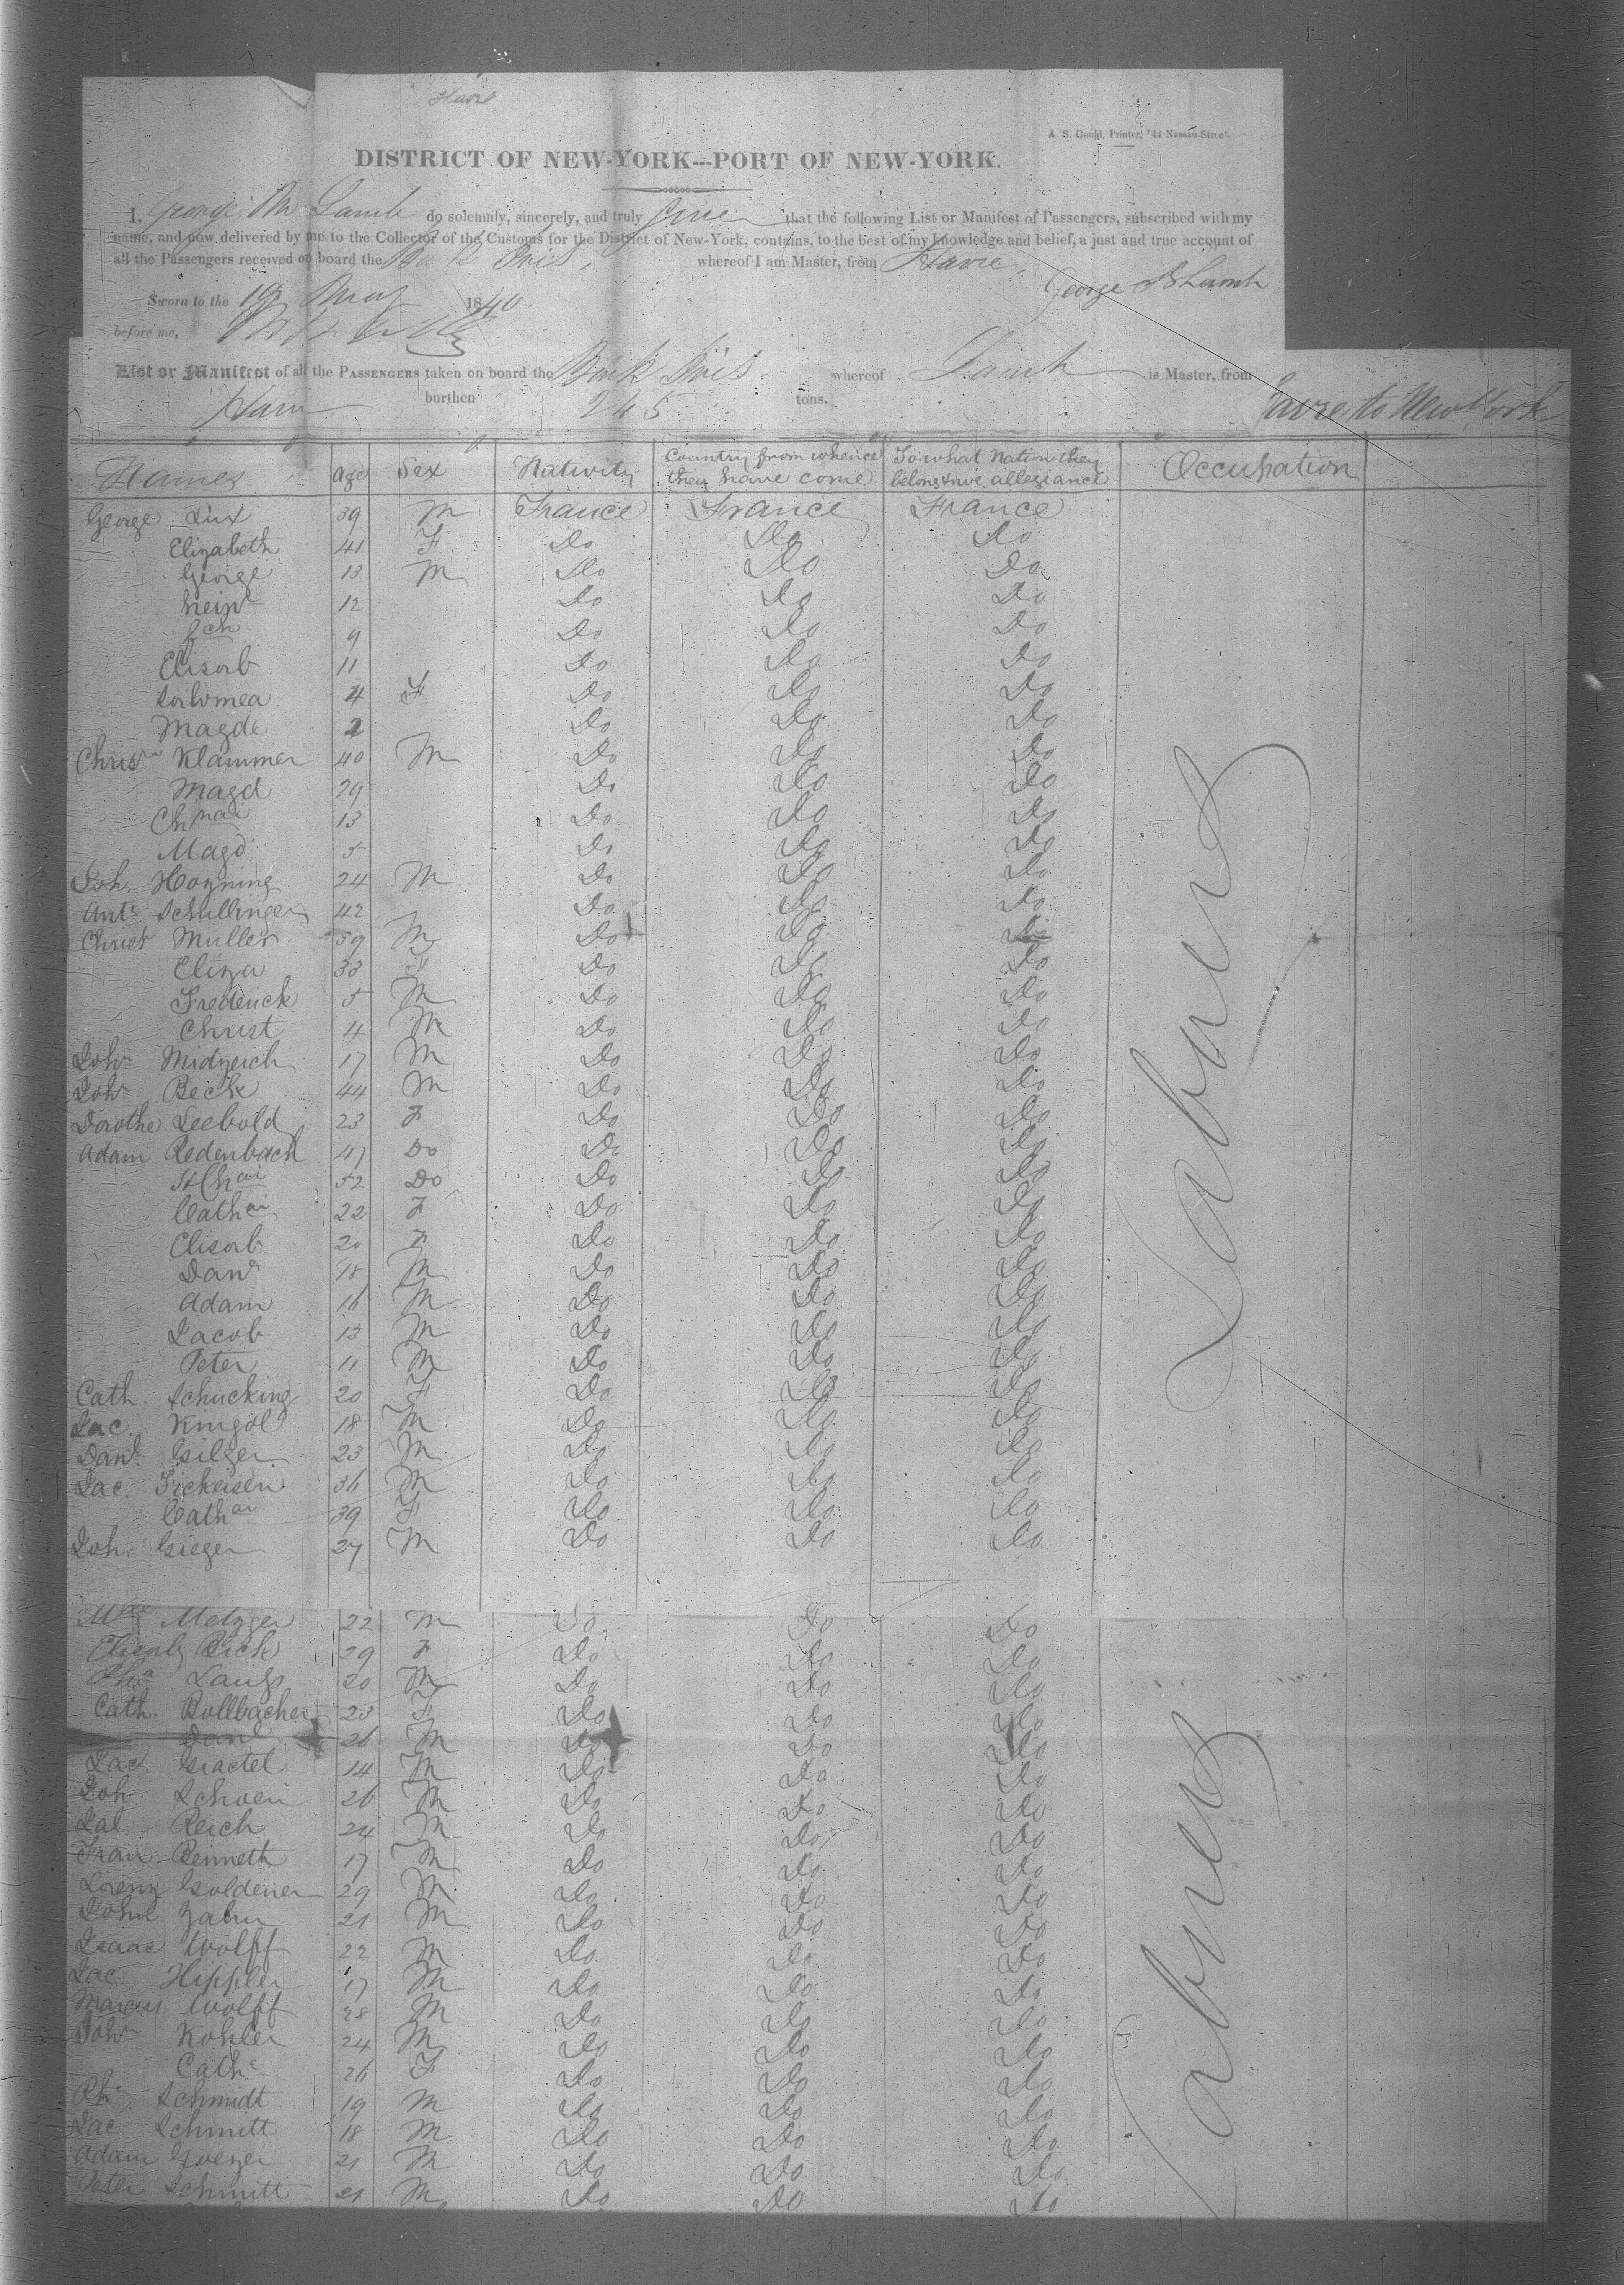 Havre
A. S. Gould, Printer, 144 Nassau Street.
DISTRICT OF NEW-YORK---PORT OF NEW-YORK.
I, George Lamb do solemnly, sincerely, and truly that the following List or Manifest of Passengers, subscribed with my
name, and now delivered by me to the Collector of the Customs for the District of New-York, contains, to the best of my knowledge and belief, a just and true account of
all the Passengers received on board the whereof I am Master, from Havre,
Sworn to the 1840. George Lamb
before me,
List or Manifest of all the PASSENGERS taken on board the whereof Lamb is Master, from
burthen 245 tons. Havre to New York
Names Age Sex Nativity Country from whence they have come To what Nation they belong allegiance Occupation
George Lux 39 M France France France
Elizabeth 41 F Do Do Do
George 13 M Do Do Do
Hein 12 Do Do Do
9 Do Do Do
Elisab 11 Do Do Do
Salomea 4 F Do Do Do
Magde 2 Do Do Do
Chrisn Klammer 40 M Do Do Do
Magd 29 Do Do Do
Chnai 13 Do Do Do
Magd 5 Do Do Do
Joh. Hoyning 24 M Do Do Do
Ant. Schillinger 42 Do Do Do
Christ Muller 39 M Do Do Do
Eliza 33 F Do Do Do
Frederick 5 M Do Do Do
Christ 4 M Do Do Do
Joh Midzeich 17 M Do Do Do
Joh Beck 44 M Do Do Do
Dorothe Seebold 23 F Do Do Do
Adam Redenbach 47 Do Do Do Do
52 Do Do Do Do
Cathai 22 F Do Do Do
Elisab 20 F Do Do Do
Danl 18 M Do Do Do
Adam 16 M Do Do Do
Jacob 13 M Do Do Do
Peter 11 M Do Do Do
Cath. Schucking 20 F Do Do Do
Jac. 18 M Do Do Do
Danl. Gilger 23 M Do Do Do
Jac. Fickeisen 36 M Do Do Do
Cathai 39 F Do Do Do
Joh Gieger 27 M Do Do Do
Labourers
Metzger 22 M Do Do Do
29 F Do Do Do
20 M Do Do Do
Cath. Bollbacher 23 F Do Do Do
Danl 26 M Do Do Do
Jac. Graetel 14 M Do Do Do
Joh Schoen 26 M Do Do Do
Reich 24 M Do Do Do
Fran Benneth 17 M Do Do Do
Lorenz Goldener 29 M Do Do Do
Zahn 21 M Do Do Do
Isaac Wolff 22 M Do Do Do
Jac Hippler 17 M Do Do Do
Marcus Wolff 28 M Do Do Do
Joh Kohler 24 M Do Do Do
Cath 26 F Do Do Do
Ph. Schmidt 19 M Do Do Do
Jac Schmitt 18 M Do Do Do
Adam 21 M Do Do Do
Peter Schmitt 21 M Do Do Do